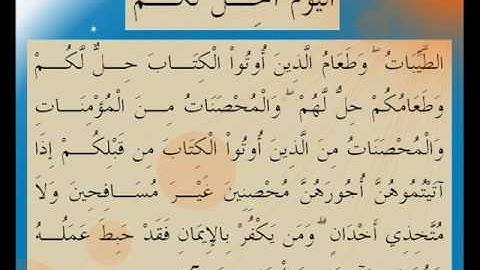 اليَوْمَ أُحِلَّ لَكُمُ
الطَّيِّبَاتُ ۖ وَطَعَامُ الَّذِينَ أُوتُواْ الْكِتَـــابَ حِلٌّ لَّكُمْ
وَطَعَامُكُمْ حِلُّ لَّهُمْ ۖ وَالْمُحْصَنَاتُ مِـنَ الْمُؤْمِنَـاتِ
وَالْمُحْصَنَاتُ مِنَ الَّذِينَ أُوتُواْ الْكِتَابَ مِن قَبْلِكُـــمْ إِذَا
آتَيْتُمُوهُنَّ أُجُورَهُنَّ مُحْصِنِينَ غَيْــرَ مُسَـــافِحِينَ وَلاَ
مُتَّخِذِي أَخْدَانٍ ۗ وَمَن يَكْفُرْ بِالإِيمَانِ فَقَدْ حَبِطَ عَمَلُـــهُ